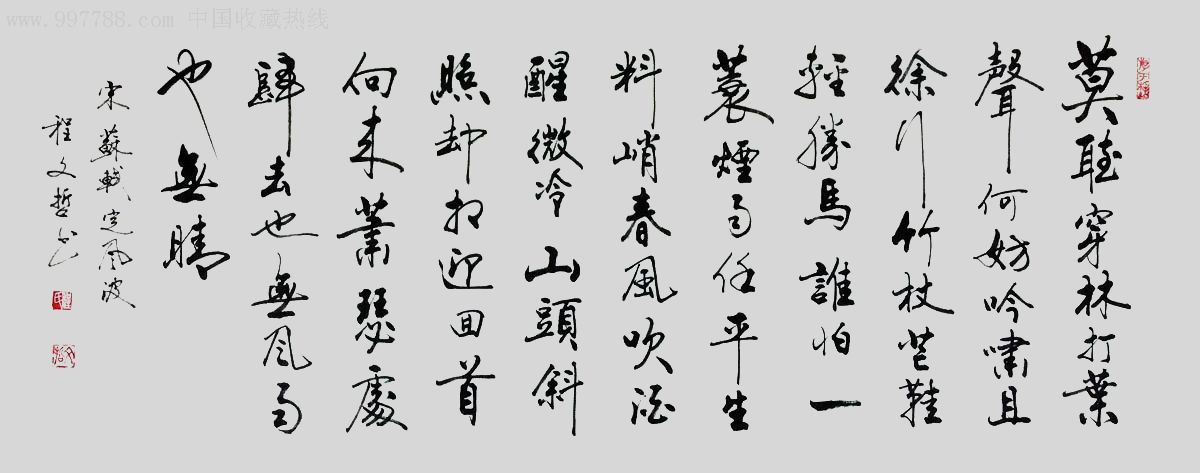 www.997788.com 中国收藏热线
莫聽穿林打葉
聲何妨吟嘯且
徐行竹杖芒鞋
輕勝馬誰怕一
蓑煙雨任平生
料峭春風吹酒
醒微冷山頭斜
照却相迎回首
向來蕭瑟處
歸去也無風雨
也無晴
宋蘇軾定風波
程文哲書